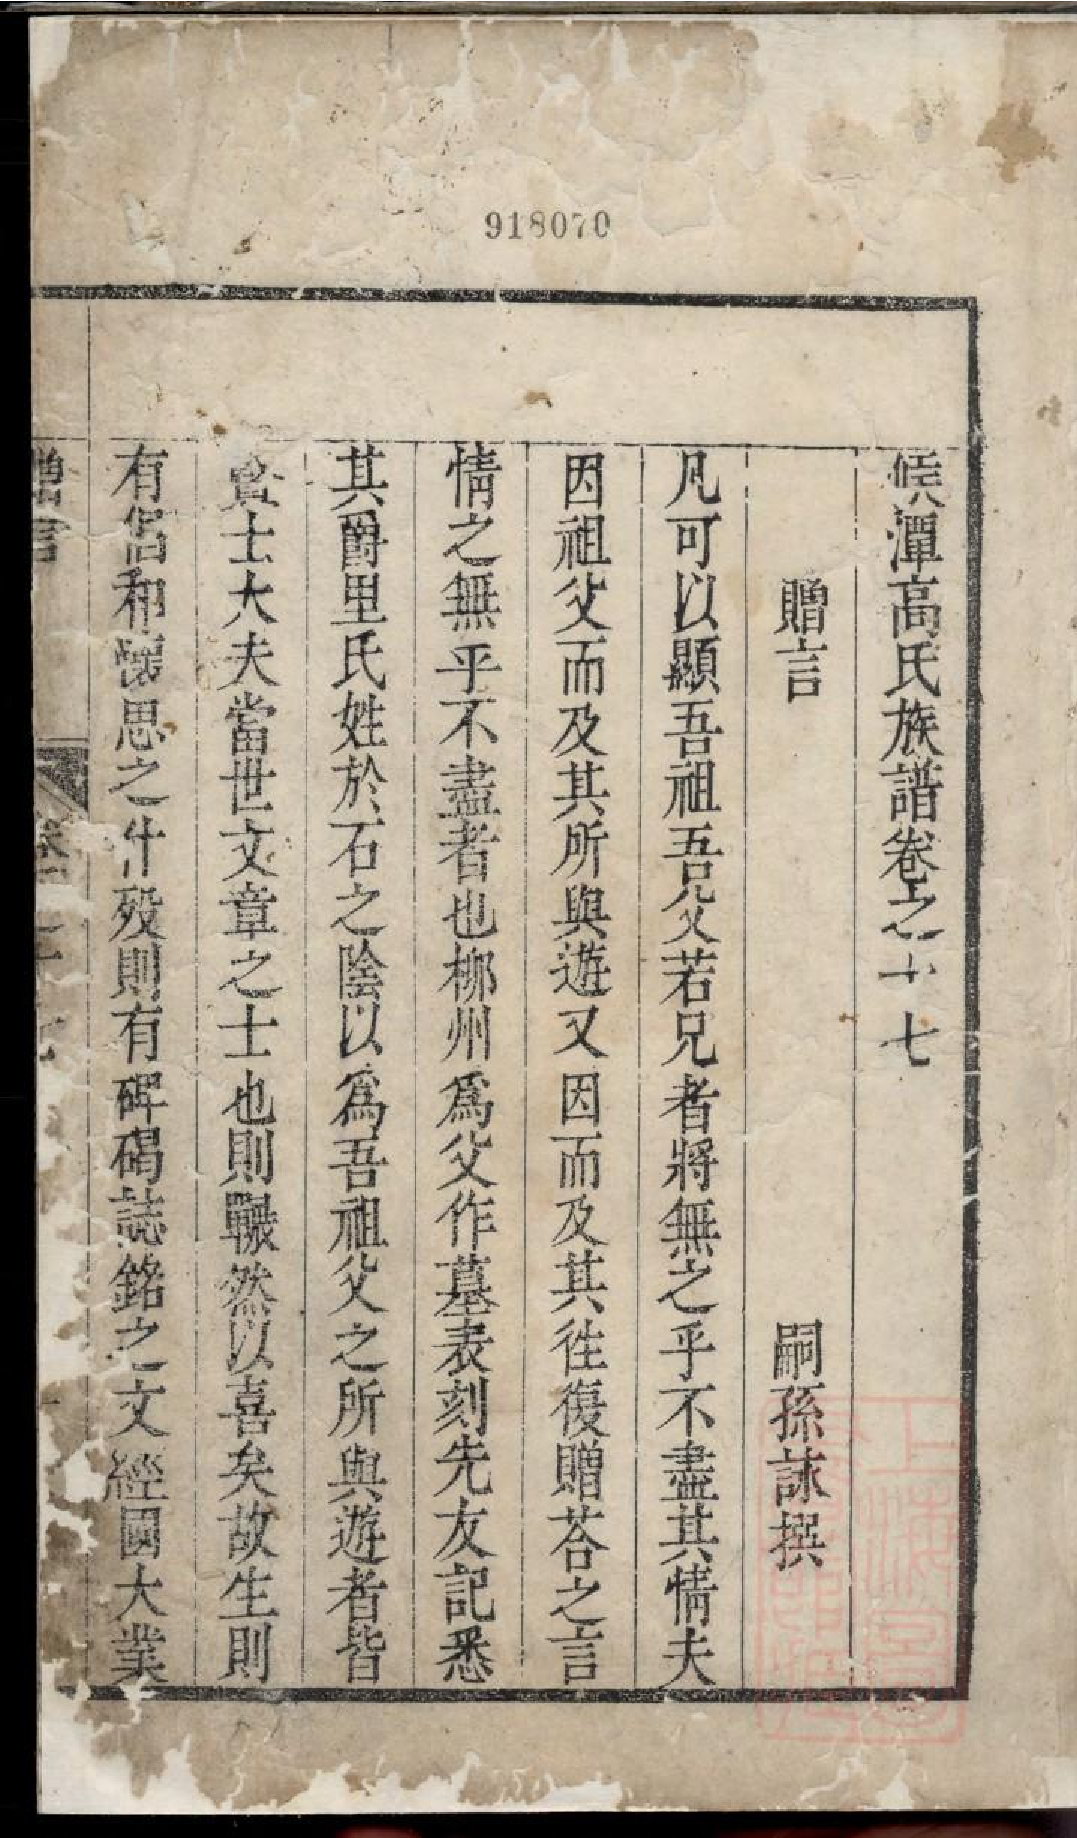 918070
候潭高氏族譜卷之十七
贈言
嗣孫詠撰
凡可以顯吾祖吾父若兄者將無之乎不盡其情夫
因祖父而及其所與遊又因而及其徃復贈荅之言
情之無乎不盡者也栁州爲父作墓表刻先友記悉
其爵里氏姓於石之陰以爲吾祖父之所與遊者皆
賢士大夫當世文章之士也則囅然以喜矣故生則
有倡和懷思之什歿則有碑碣誌銘之文經國大業
贈言